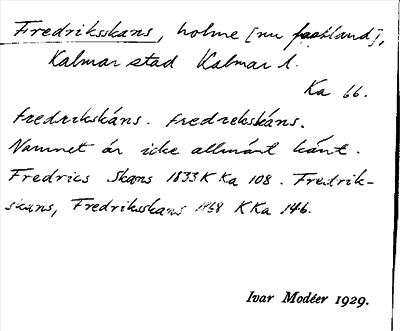 Fredriksskans, holme [nu fastland],
Kalmar stad Kalmar l.
Ka 66.
fredrikskáns. fredrekskáns.
Namnet är icke allmänt känt.
Fredrics Skans 1833 K Ka 108. Fredrik-
skans, Fredriksskans 1968 K Ka 146.
Ivar Modéer 1929.